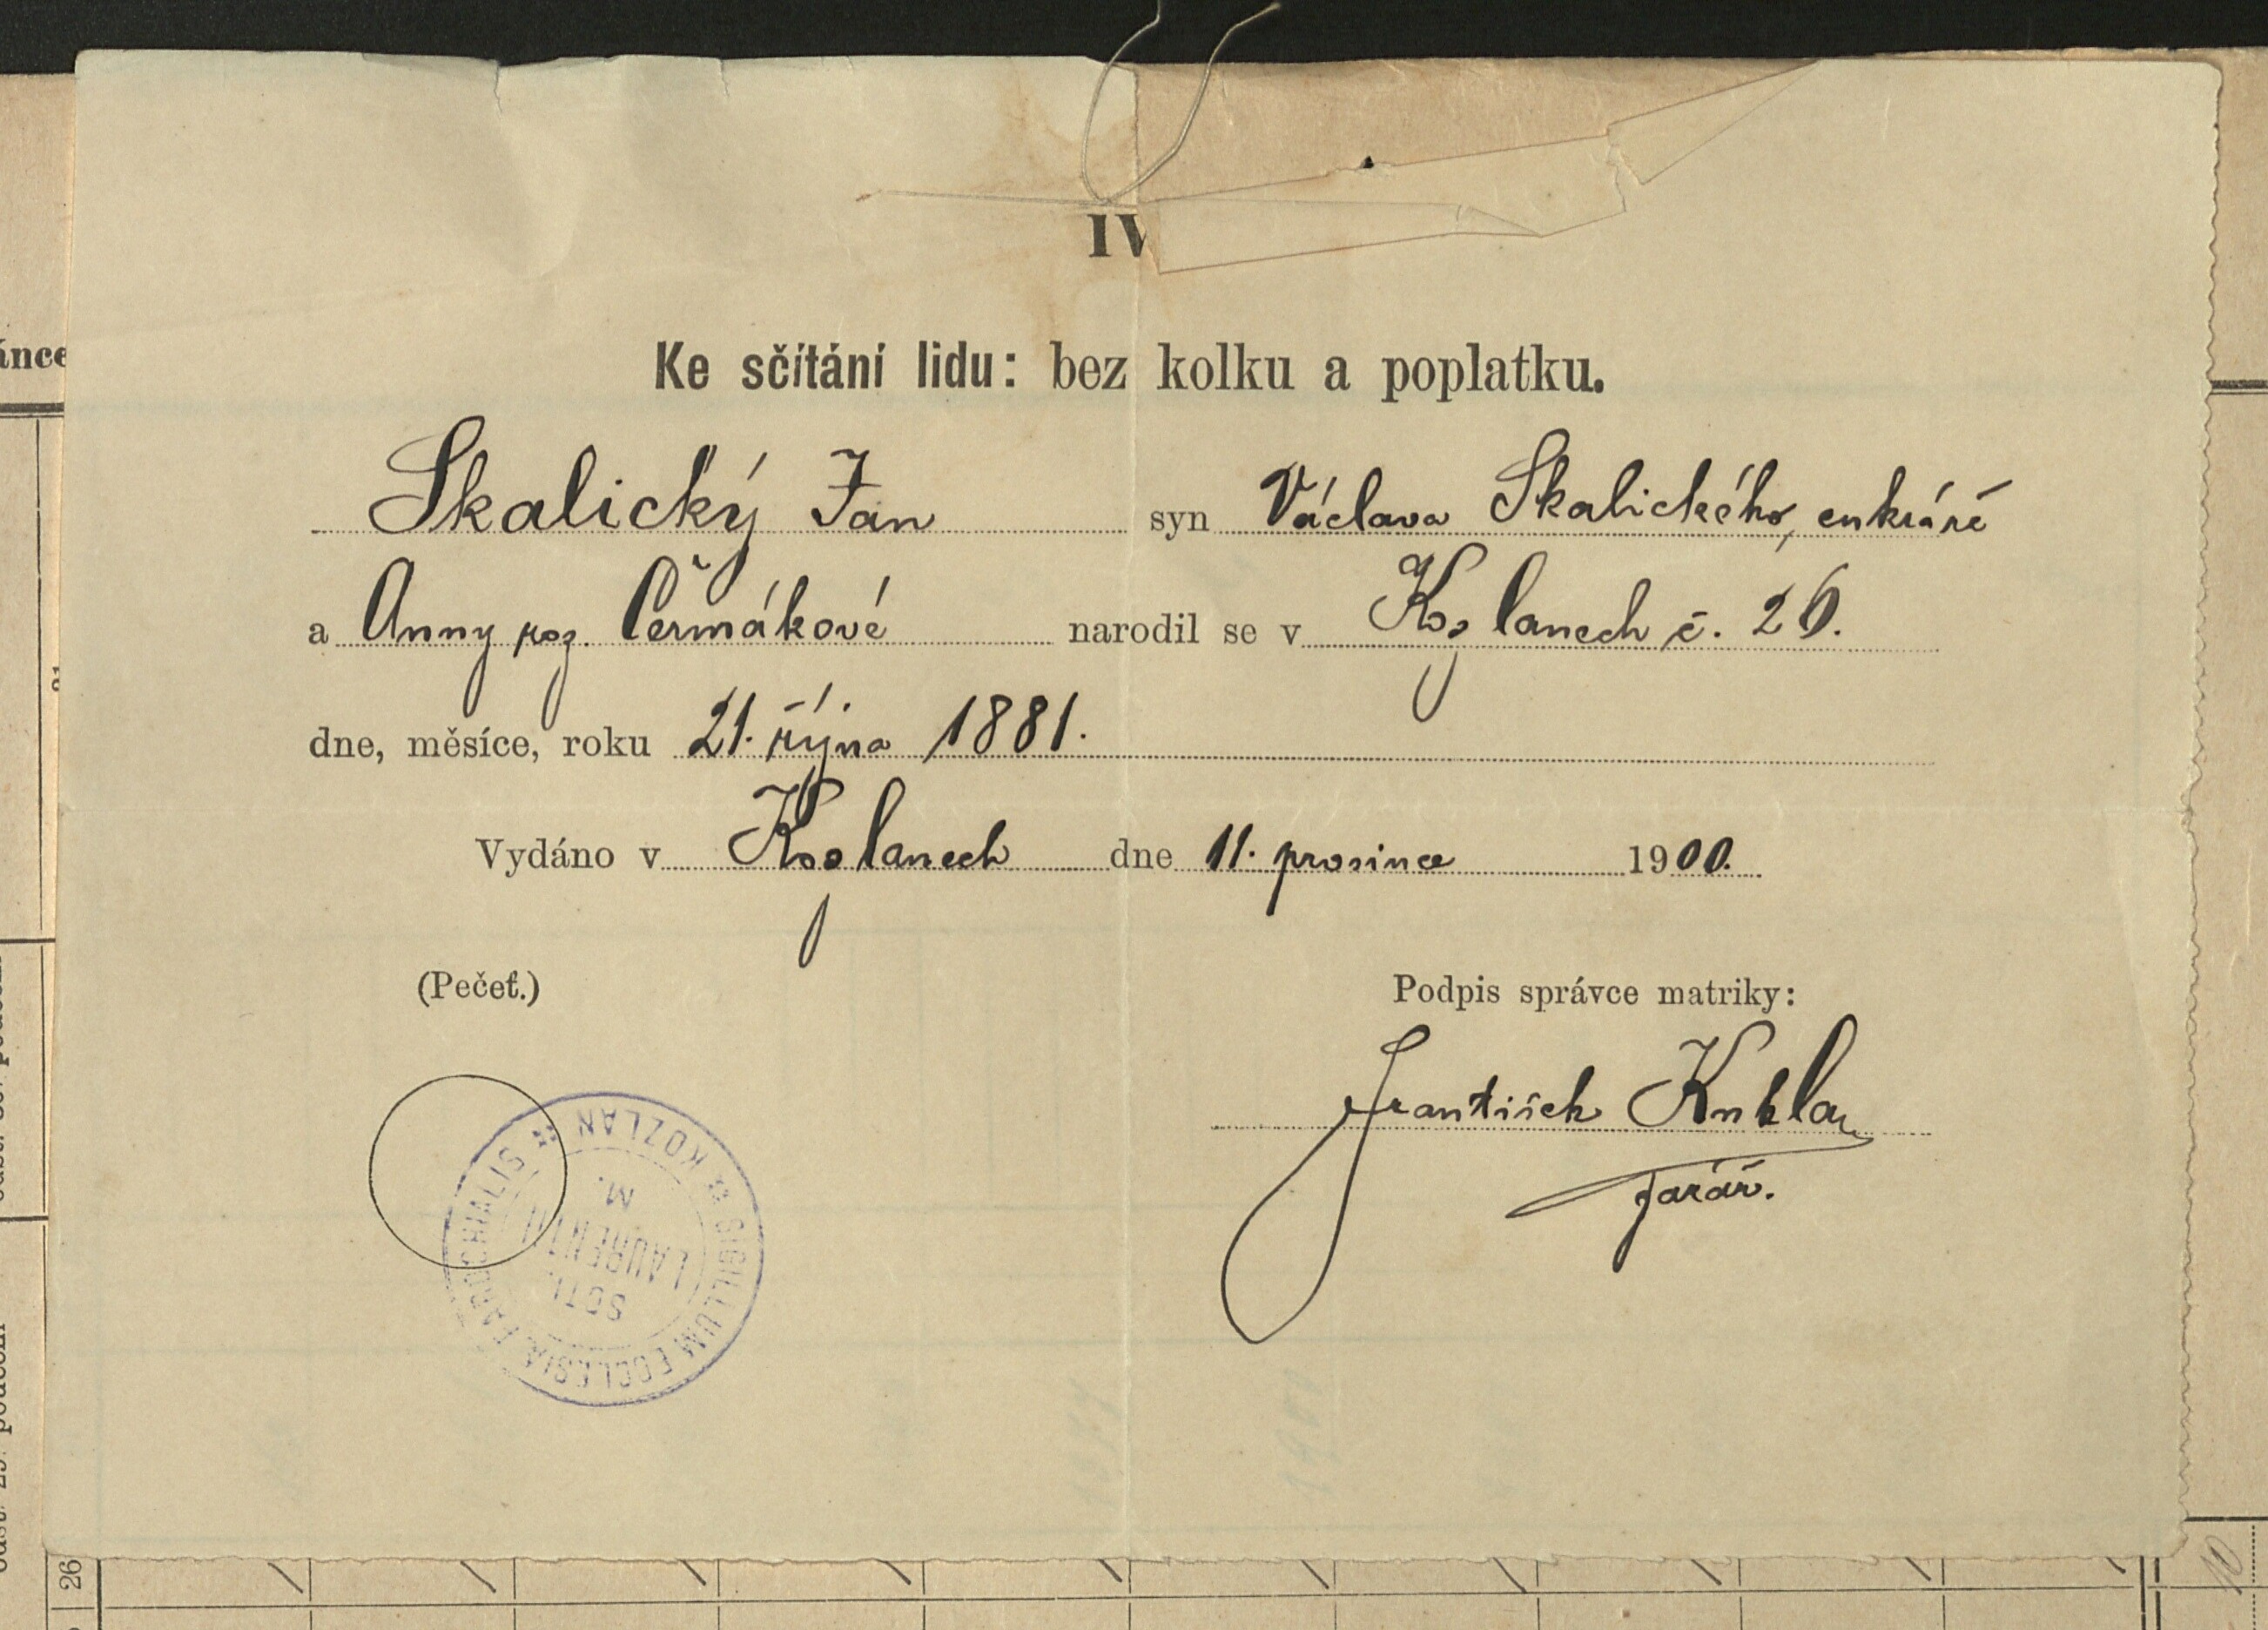 ánce
IV
Ke sčítání lidu: bez kolku a poplatku.
Skalický Jan syn Václava Skalického, cukráře
a Anny roz. Čermákové narodil se v Kozlanech č. 26.
dne, měsíce, roku 21. října 1881.
Vydáno v Kozlanech dne 11. prosince 1900.
(Pečeť.)
Podpis správce matriky:
František Kubla
farář.
SIGILLUM ECCLESIÆ PAROCHIALIS KOZLAN
SCTI.
LAURENTII
M.
26
10